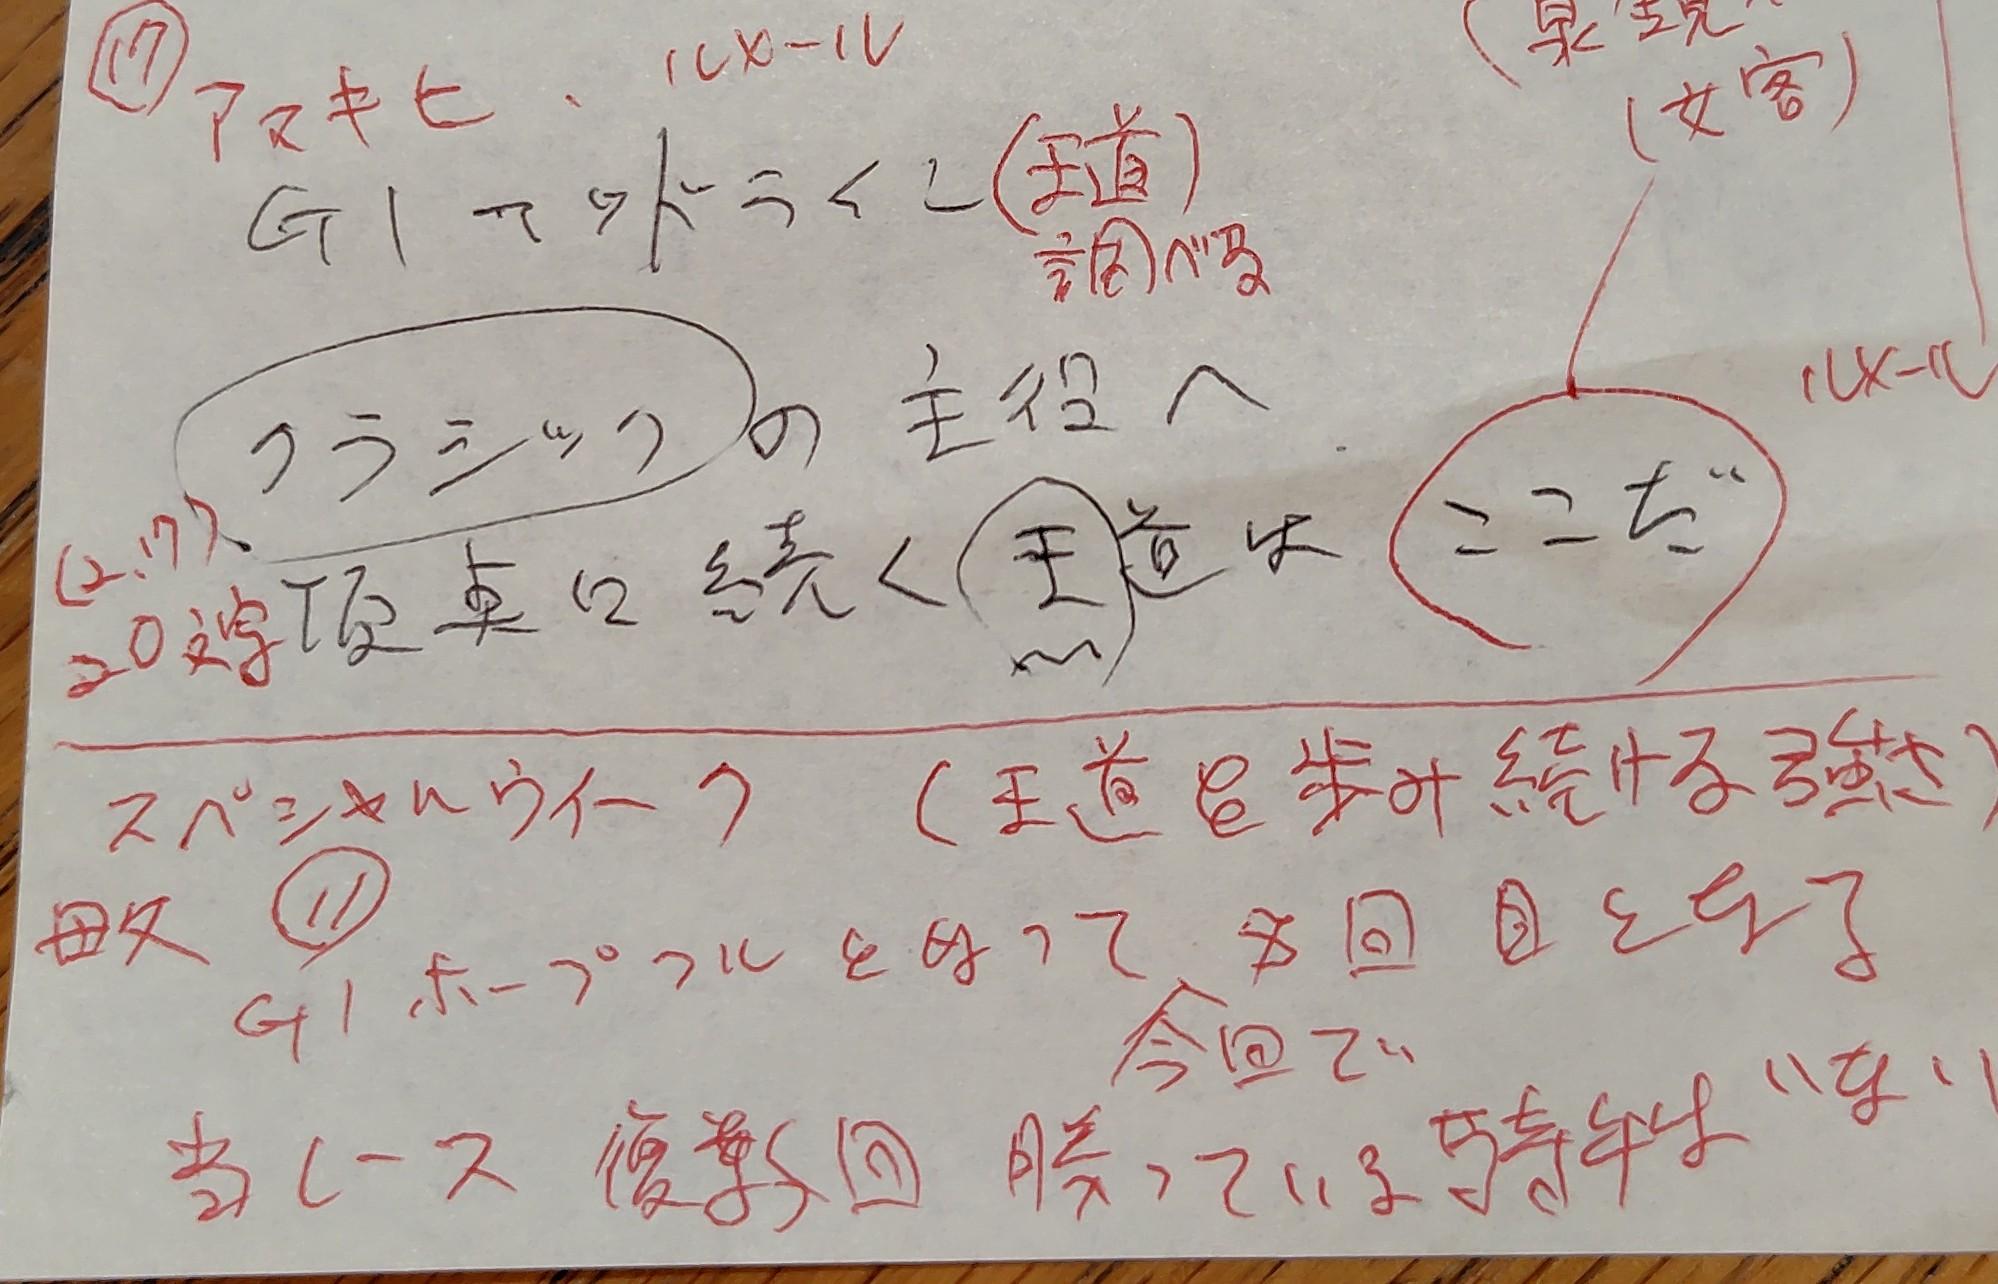 ⑰ アスキヒ . ルメール
(女客)
G1 ヘッドライン (王道)
調べる
クラシックの主役へ
ルメール
(2.17)
20文字
頂点に続く王道は ここだ
スペシャルウィーク (王道を歩み続ける強さ)
母父 ⑪
G1 ホープフルとなって 8回目となる
今回で
当レース 複数回 勝っている騎手はいない